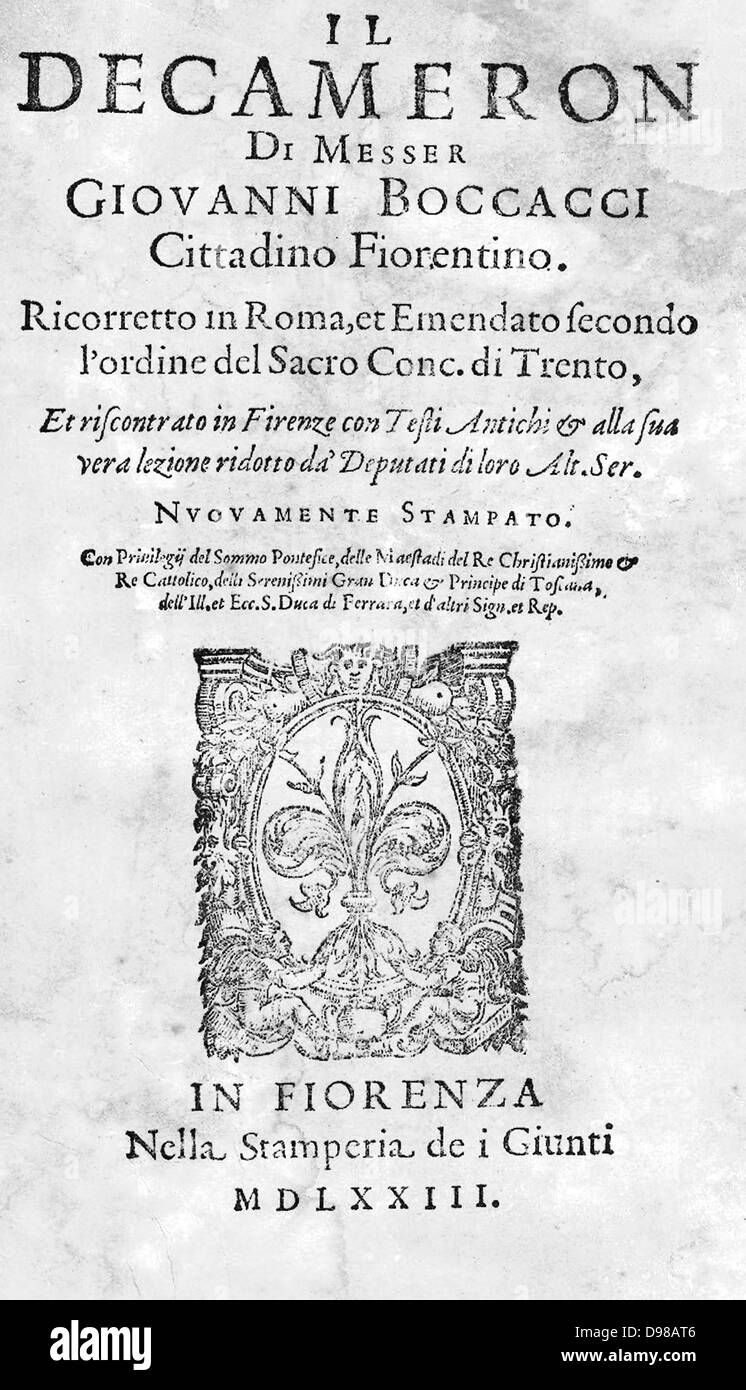 IL
DECAMERON
DI MESSER
GIOVANNI BOCCACCI
Cittadino Fiorentino.
Ricorretto in Roma, et Emendato ſecondo
l'ordine del Sacro Conc. di Trento,
Et riſcontrato in Firenze con Teſti Antichi & alla ſua
vera lezione ridotto da' Deputati di loro Alt. Ser.
NVOVAMENTE STAMPATO.
Con Priuilegij del Sommo Pontefice, delle Maeſtadi del Re Chriſtianißimo &
Re Cattolico, delli Sereniſſimi Gran Duca & Principe di Toſcana,
dell'Ill. et Ecc. S. Duca di Ferrara, et d'altri Sign. et Rep.
IN FIORENZA
Nella Stamperia de i Giunti
MDLXXIII.
alamy
alamy
alamy
Image ID: D98AT6
www.alamy.com